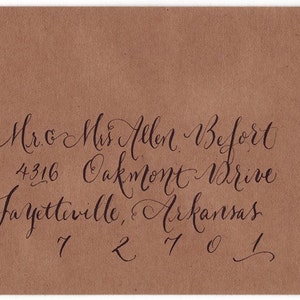 Mr. & Mrs. Allen Befort
4316 Oakmont Drive
Fayetteville, Arkansas
7 2 7 0 1